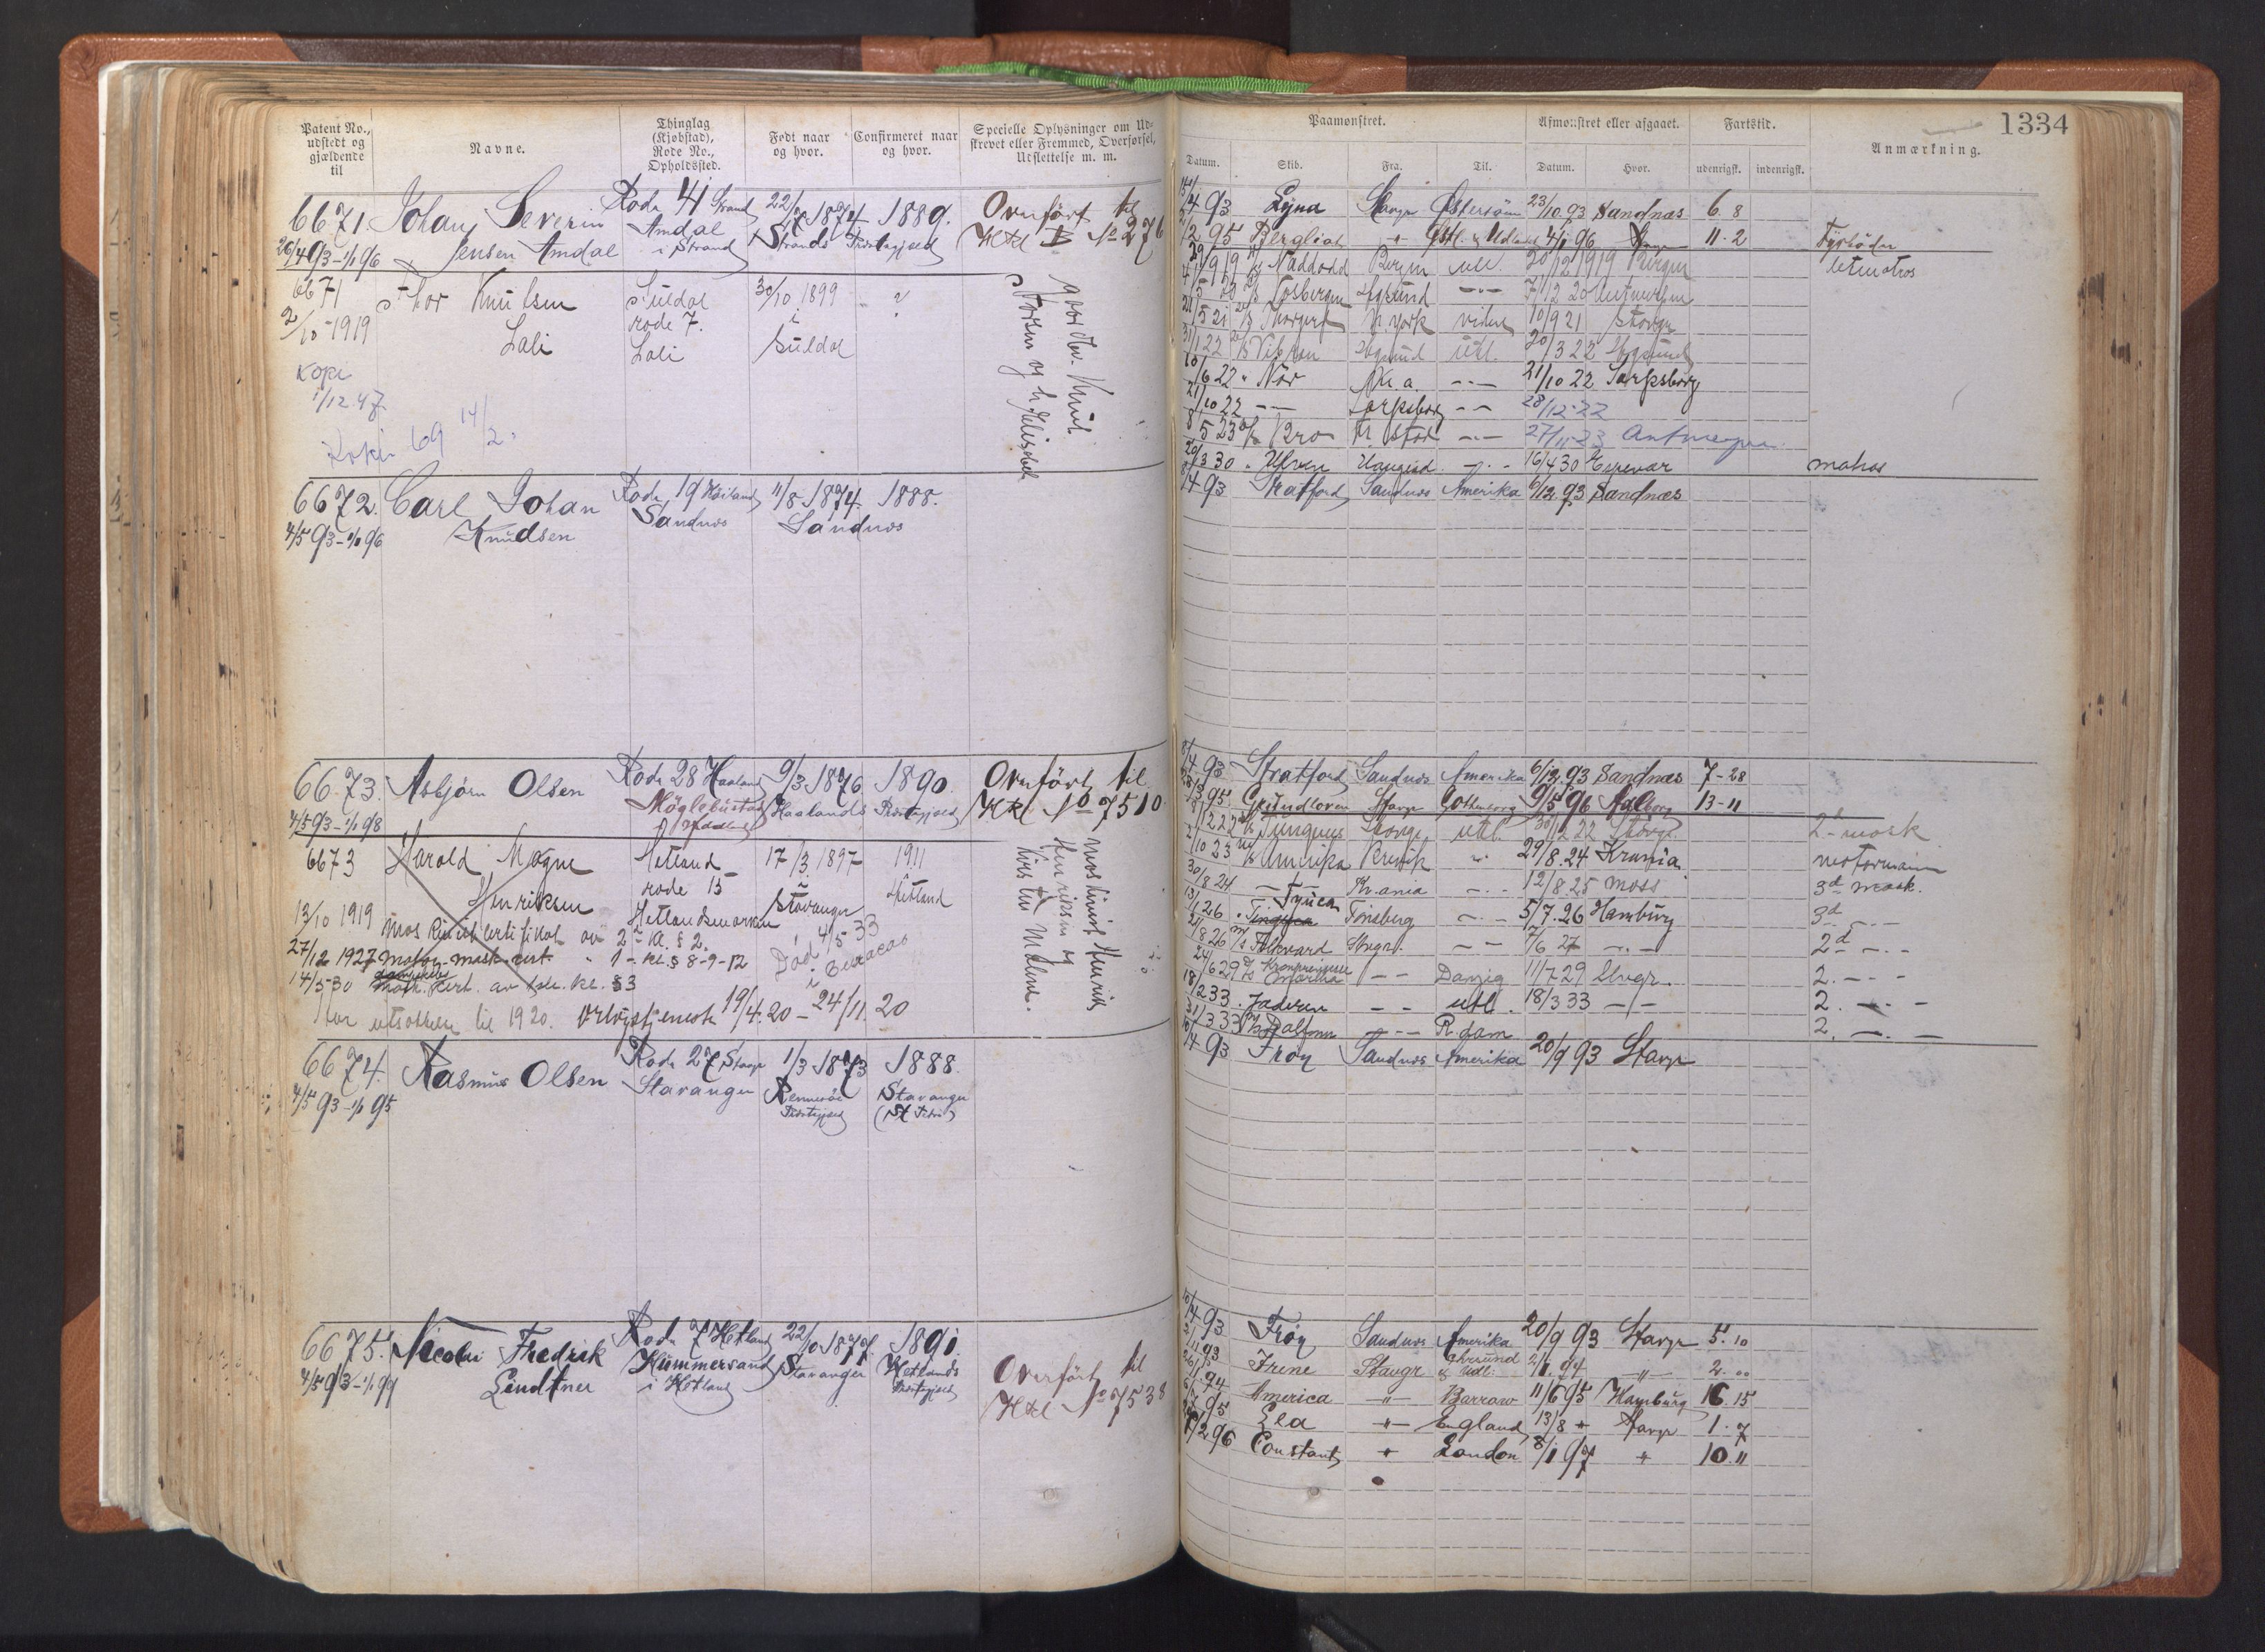 Patent No., udstedt og gjældende til
Navne.
Thinglag (Kjøbstad), Rode No., Opholdssted.
Født naar og hvor.
Confirmeret naar og hvor.
Specielle Oplysninger om Udskrevet eller Fremmed, Overførsel, Udslettelse m. m.
6671. Johan Severin Rode 41 Strand 22/7 1874 1889. Overført til
26/4 93-1/1 96 Jensen Amdal Amdal i Strand Strands Præstegjeld Hkl No 276
6671 Thor Knutsen Suldal 30/10 1899 ?
2/10-1919 Lali rode 7. i
Lali Suldal
Kopi
1/12.47.
Kopi 69 14/2.
gaardbr. Knut
6672. Carl Johan Rode 19 Høiland 11/8 1874. 1888.
4/5 93-1/1 96 Knudsen Sandnæs Sandnæs
6673. Asbjørn Olsen Rode 28 Haaland 9/3 1876 1890. Overført til
4/5 93-1/1 98 Haalands Præstegjeld Hkl No 7510
6673 Harold Magne Hetland 17/3 1897 1911
Henriksen rode 15 i Hetland
13/10 1919 Hetlandsmarken Stavanger
maskinist Henrik
Henriksen og
Mos Kinistcertifikat av 2- kl. § 2.
27/12 1927 Motor-mask.cert. " 1- kl. § 8-9-12
14/5-30 cert. av kl. § 3
Død 4/5-33
i
til 1920. 19/4.20-24/11.20
6674. Rasmus Olsen Rode 27 Stavgr 1/3 1873 1888.
4/5 93-1/1 95 Stavanger Rennesøe Præstegjeld Stavanger (St Petri)
6675. Nicolai Fredrik Rode 7 Hetland 22/10 1877. 1891.
4/5 93-1/1 99 Lindtner Hummersand i Hetland Stavanger Hetlands Præstegjeld
Overført til
Hkl No 7538
1334
Paamønstret.
Afmønstret eller afgaaet.
Fartstid.
Anmærkning.
Datum. Skib. Fra. Til. Datum. Hvor. udenrigsk. indenrigsk.
15/4 93 Lyna Stavgr Østersøen 23/10 93 Sandnæs 6. 8
2/2 95 Bergliot 4/1 96 Stavgr 11. 2 Fyrbøder
Naddodd Bergen utl. 20/12 1919 Bergen letmatros
7/12 20 Antwerpen
N. York 10/9 21 Stavgr
31/1 22 utl. 20/3 22
10/6 22 " Nor Kr. a. -"- 21/10 22 Sarpsborg
21/10 22 -- Sarpsborg -- 28/12-22
8/5 23 -"- 27/11-23 Antwerpen
20/3 30 " Haugesd. -"- 16/4 30 Espevær matros
8/4 93 Stratford Sandnæs Amerika 6/12 93 Sandnæs
8/4 93 Stratford Sandnæs Amerika 6/12 93 Sandnæs 7-28
95 Grundloven Stavgr Gothenborg 9/5 96 Aalborg 13-11
Stavgr. utl. 30/12 22 Stavgr. 2- mask
2/10 23 Amerika Brevik -"- 29/8.24 Krania motormann
30/8 24 -- Kr.ania -"- 12/8.25 Moss 3d mask.
13/1 26 Tyrea Tønsberg -"- 5/7.26 Hamburg 3d -"-
21/8 26 M/s Folkvard Stvgr. -- 7/6 27 -"- 2d -"-
24/6 29 Kronprinsesse Märtha -- Danzig 11/7 29 Stvgr. 2. -"-
18/2 33 . Jæderen -- utl. 18/3 33 -"- 2. -"-
31/3 33 -"- R.dam 2. -"-
10/4 93 Frøy Sandnæs Amerika 20/9 93 Stavgr
10/4 93 Frøy Sandnæs Amerika 20/9 93 Stavgr 5. 10
2/11 93 Irene Stavgr Egersund & Udl: 94 -"- 2. "
26/1 94 America -"- Barrow 11/6 95 Hamburg 16. 15
95 Lea " England 13/8 " Stavgr 1. 7
7/2 96 Constant " London 8/1 97 " 10. 11